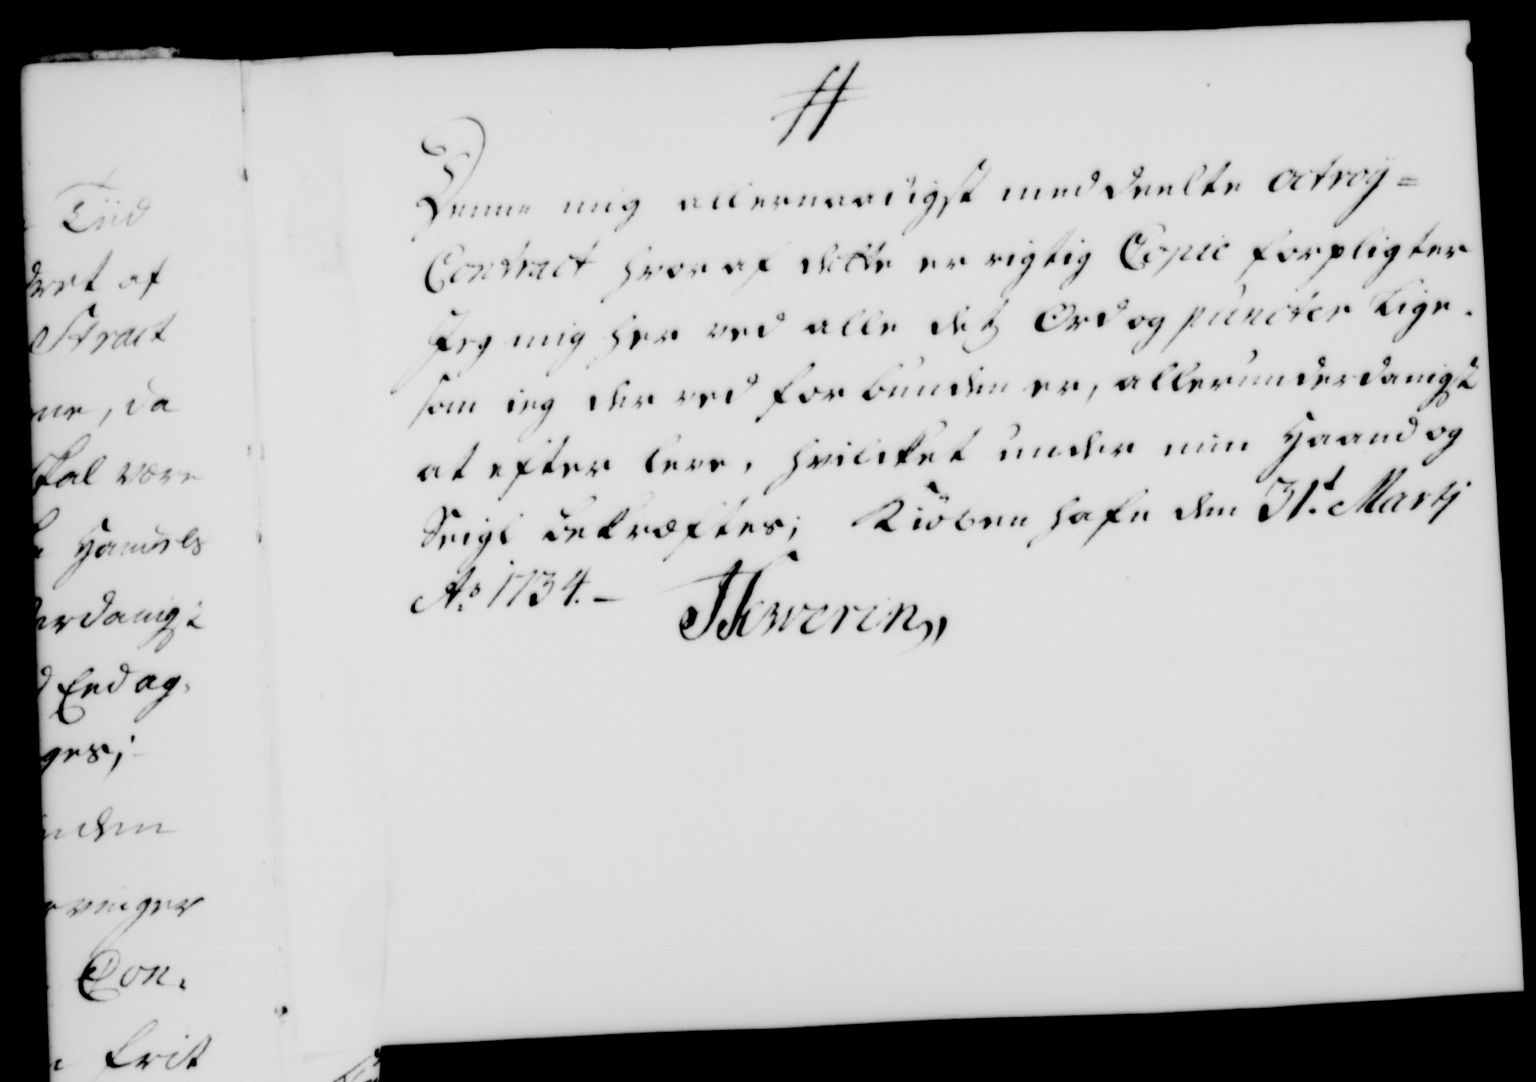 #
Denne mig allernaadigst meddeelte Octroy=
Contract hvoraf dette er rigtig Copie forpligter
Jeg mig her ved alle detz Ord og puncter lige-
som ieg der ved forbunden er, allerunderdanigst
at efter leve, hvilcket under min Haand og
Seigl bekræftes; Kiøbenhafn den 31t. Martj
Ao. 1734.-
JSeverin
Tiid
ret af
Stract
ne, da
skal være
Handels
erdanigst
Eed og
ges;
inden
ringer
Con-
frit